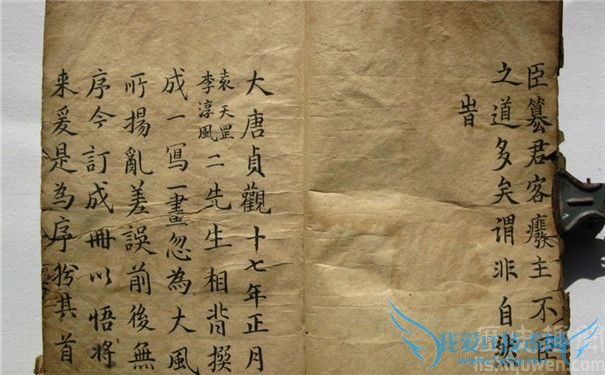 臣篡君客癈主不臣
之道多矣謂非自
旹
大唐貞觀十七年正月
袁天罡
李淳風
二先生相背撰
成一寫一畫忽為大風
所揚亂差誤前後無
序今訂成冊以悟將
来爰是為序於其首
我爱IT技术网